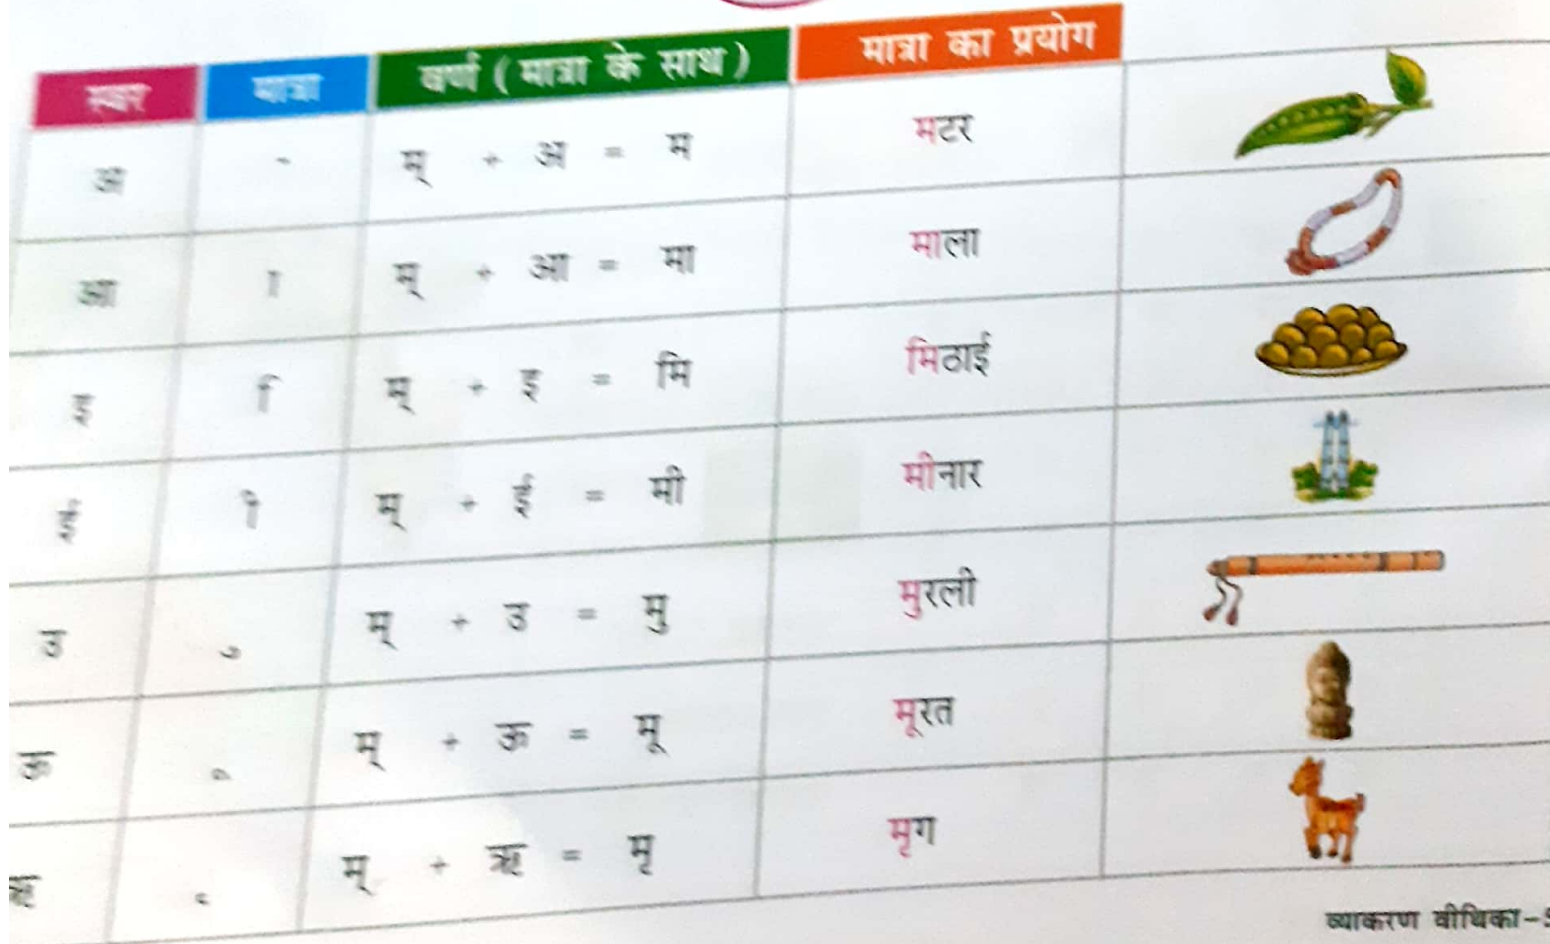 स्वर मात्रा वर्ण ( मात्रा के साथ ) मात्रा का प्रयोग
अ - म् + अ = म मटर
आ ा म् + आ = मा माला
इ ि म् + इ = मि मिठाई
ई ी म् + ई = मी मीनार
उ ु म् + उ = मु मुरली
ऊ ू म् + ऊ = मू मूरत
ऋ ृ म् + ऋ = मृ मृग
व्याकरण वीथिका-5